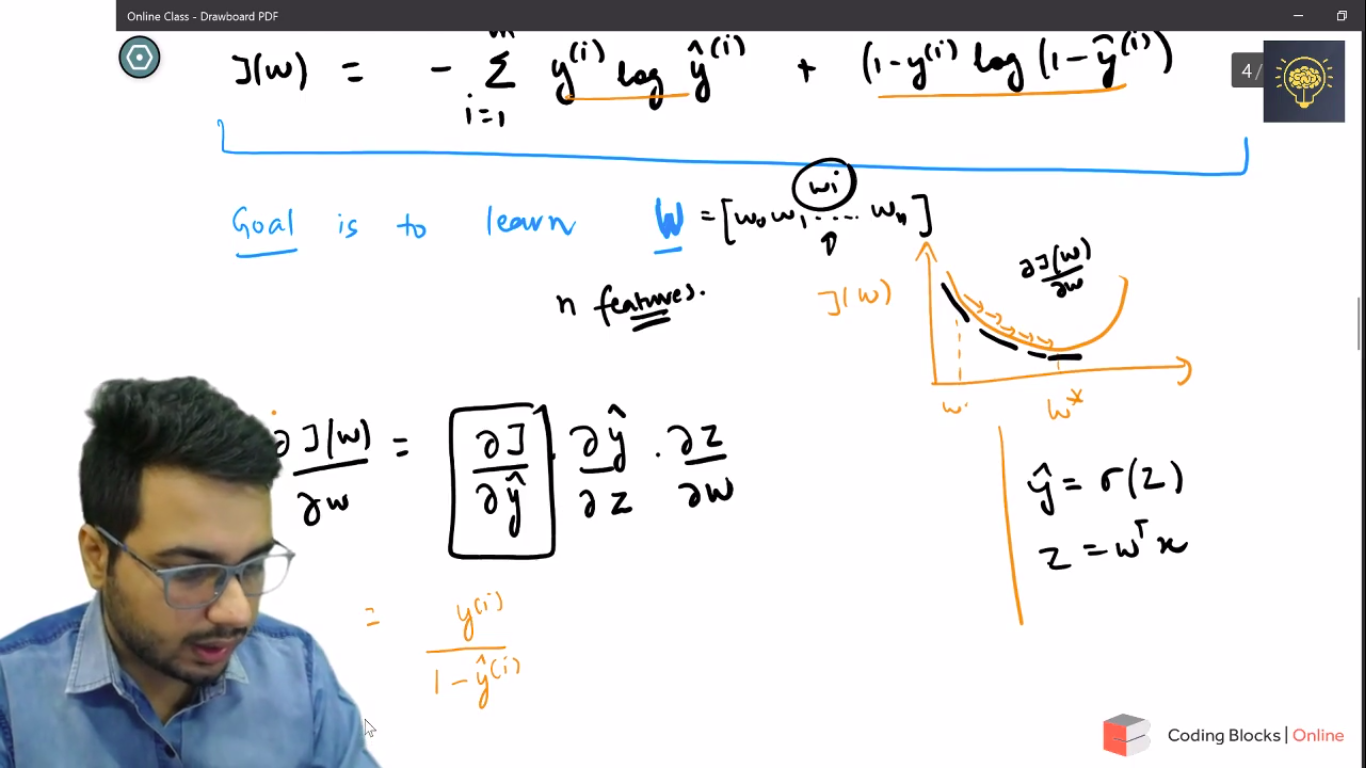 Online Class - Drawboard PDF
4/
J(w) = - Σ y^(i) log ŷ^(i) + (1-y^(i) log (1-ŷ^(i))
i=1
Goal is to learn W = [w₀ w₁ .... wₙ]
wi
n features.
J(w)
∂J(w)/∂w
w*
∂J(w)/∂w = ∂J/∂ŷ · ∂ŷ/∂z · ∂z/∂w
ŷ = σ(z)
z = wᵀx
= y^(i)/1-ŷ^(i)
Coding Blocks | Online